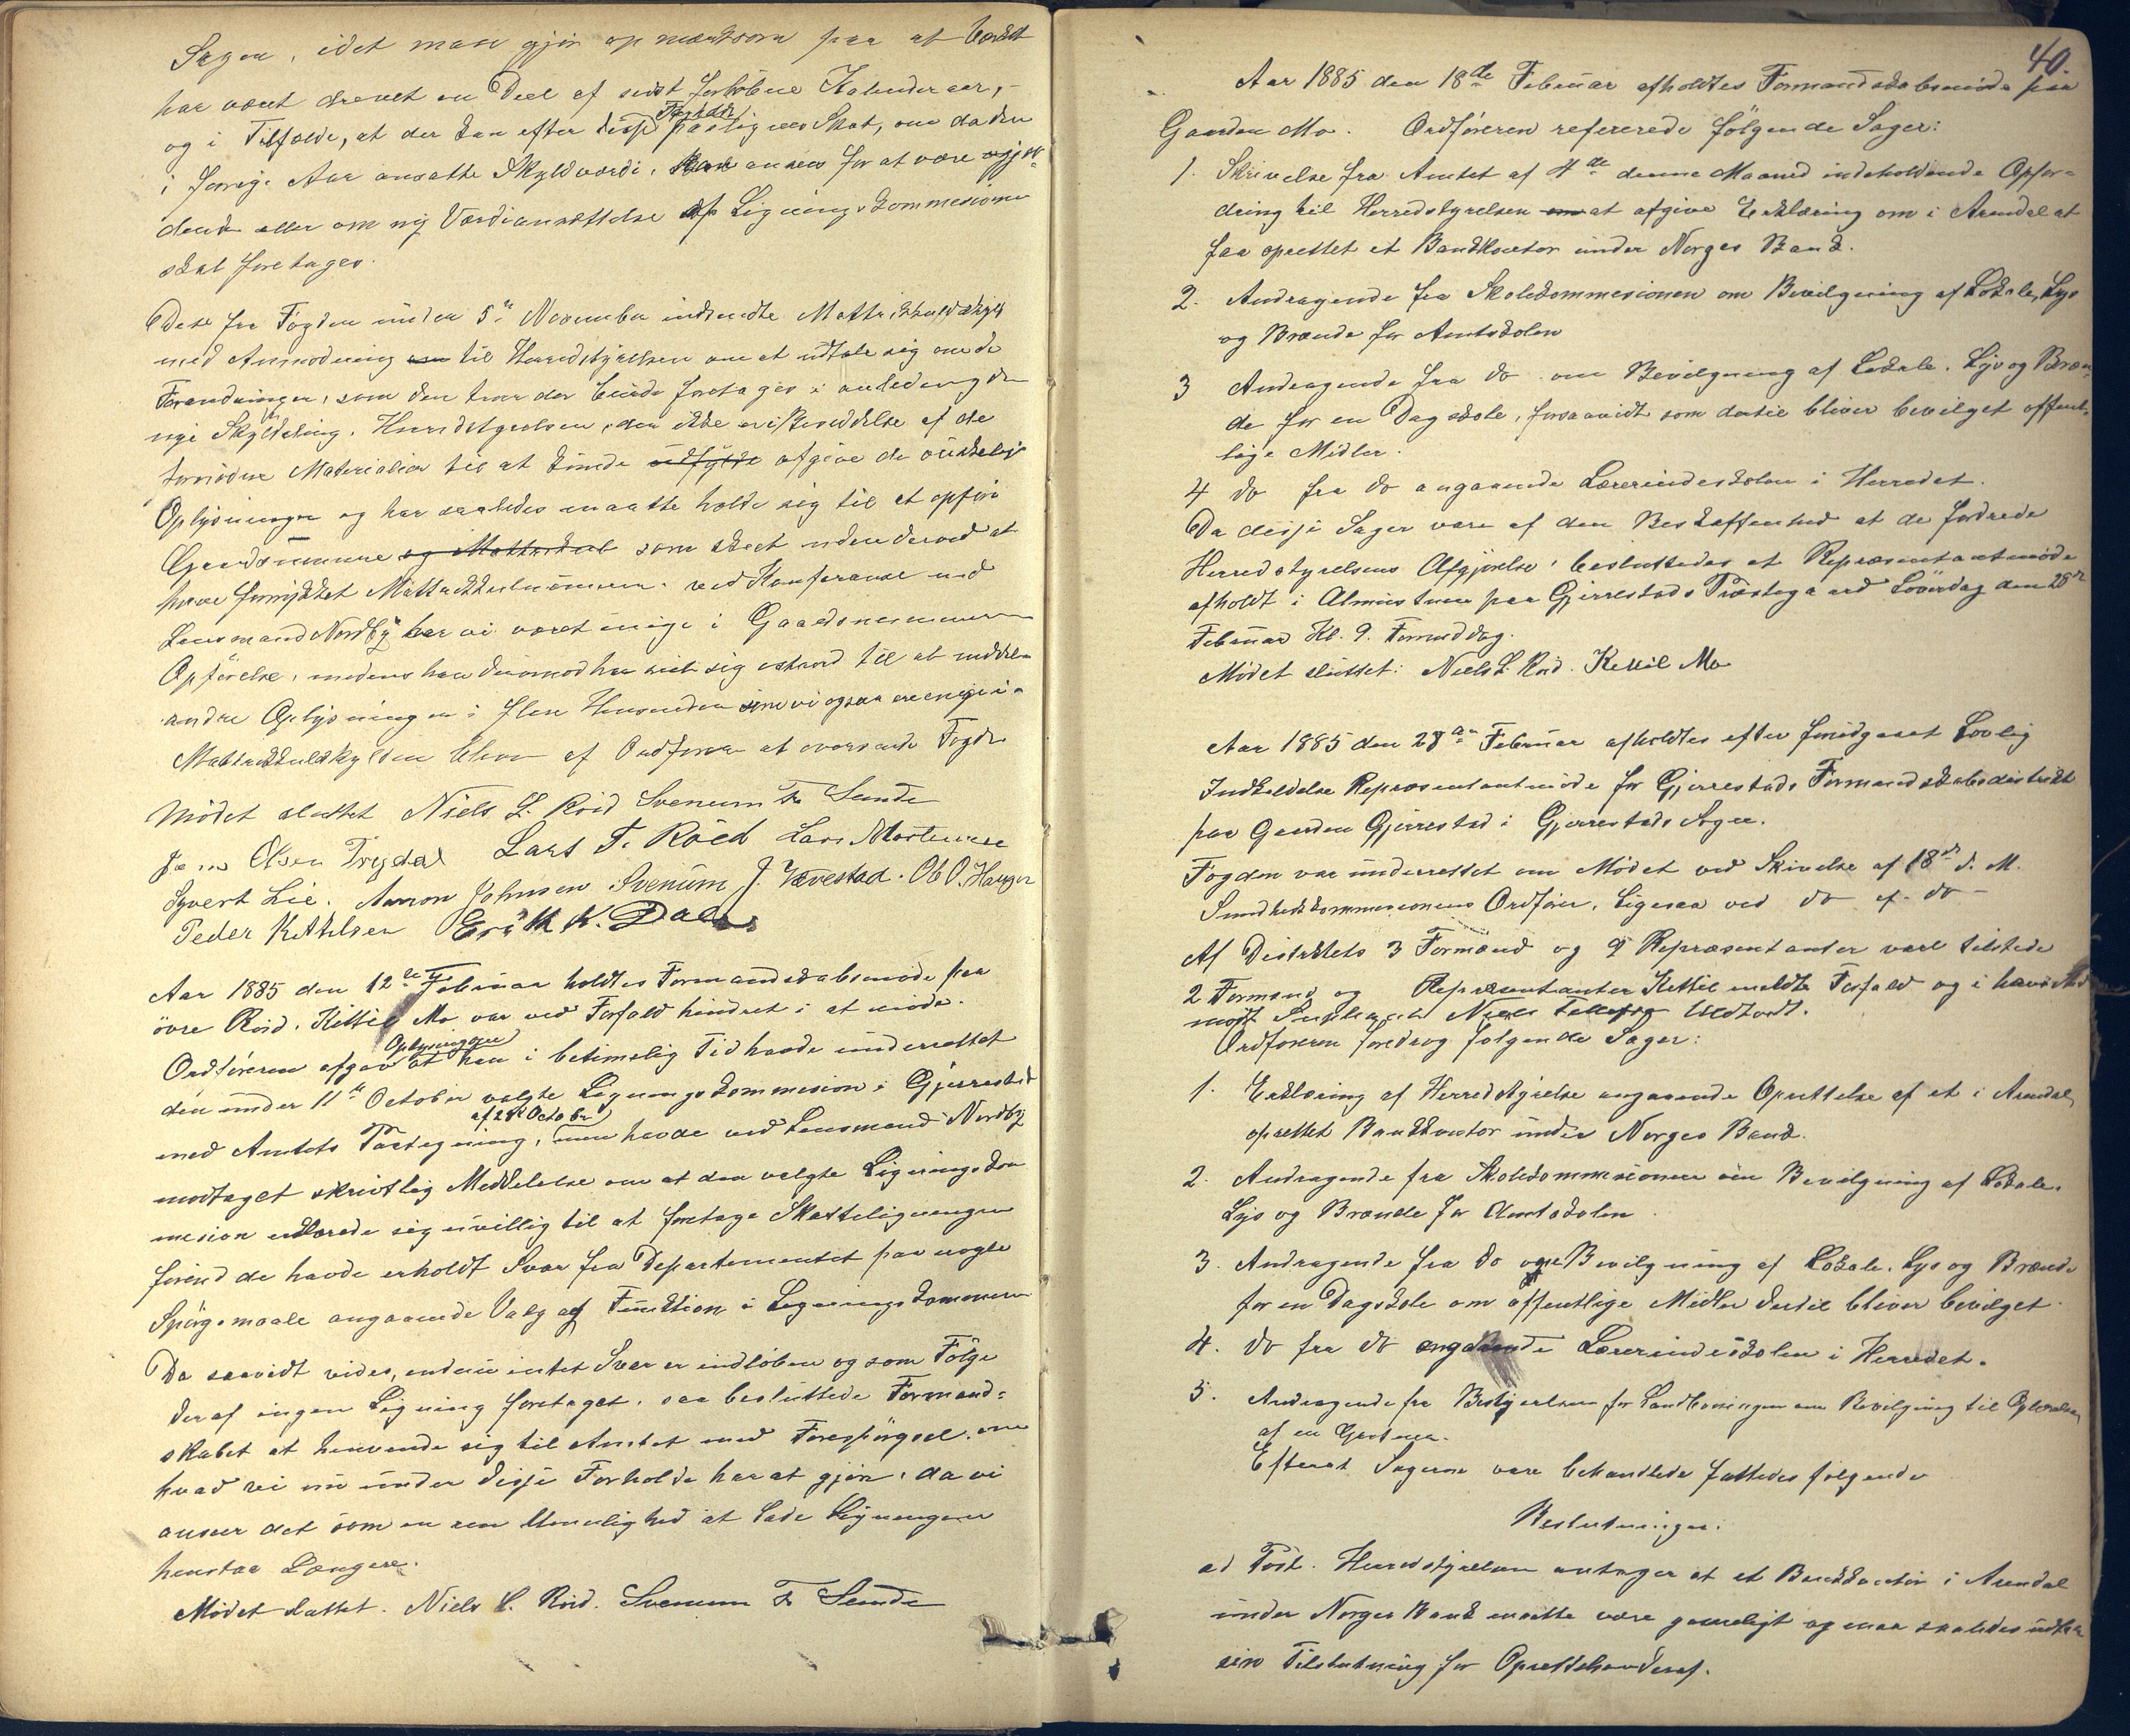 Sagen, idet man gjør opmærksom paa at Bruket
har været drevet en Deel af sidst forløbne Kalenderaar,-
og i Tilfælde, at der kan efter disse Forholde paalignes Skat, om da den
i forrige Aar ansatte Skyldværdi, kan ansees for at være gjæl-
dende eller om ny Værdiansættelse af Ligningskommisionen
skal foretages.
Dese fra Fogden under 5te November indsendte Mattrikkulskyld
med Anmodning om til Herredstyrelsen om at udtale sig om de
Forandringer, som den tror der burde foretages i anledning den
nye Skyldeling. Herredstyrelsen, der ikke er i Besiddelse af de
fornødne Materialier til at kunde udfylde afgive de ønskelige
Oplysninger og har saaledes maatte holde sig til at opføre
Gaardsnumrne og Mattrikul som skeet uden derved at
have forrykket Mattrikkulnumren. ved Konferance med
Lensmand Nordby har vi været enige i Gaardsnummerens
Opførelse, medens han derimod har seet sig istand til at meddele
andre Oplysninger i flere Henseender som vi ogsaa ere enige i
Mattrikkulskylden blev af Ordføren at oversende Fogden
Mødet sluttet Niels L. Röid Svenum Fr Sunde
Jens Olsen Trydal Lars T. Röed Lars Mortensen
Syvert Lie. Aanon Johnsen Svenum J. Vævestad. Ole O. Haugen
Peder Kittelsen Erik K. Dale
Aar 1885 den 12te Februar holdtes Formandskabsmøde paa
övre Röid. Kittil Mo var ved Forfald hindret i at møde.
Ordføreren afgav Oplysninger at han i betimelig Tid havde underrettet
den under 11te October valgte Ligningskommision i Gjerrestad
med Amtets Paategning, af 28de October men havde ved Lensmand Nordby
modtaget skriftlig Meddelelse om at den valgte Ligningskom
mision erklærede sig uvillig til at foretage Skatteligningen
förend de havde erholdt Svar fra Departementet paa nogle
Spørgsmaale angaaende Valg og Funktion i Ligningskommisionen
Da saavidt vides, endnu intet Svar er indløben og som Følge
deraf ingen Ligning foretaget, saa besluttede Formand-
skabet at henvende sig til Amtet med Forespørgsel, om
hvad vi nu under disse Forholde har at gjøre, da vi
anseer det som en ren Umulighed at lade Ligningen
henstaa Længere.
Mødet sluttet. Niels L. Röid. Svenum Fr Sunde
40.
Aar 1885 den 18de Februar afholdtes Formandskabsmøde paa
Gaarden Mo. Ordføreren refererede følgende Sager:
1. Skrivelse fra Amtet af 4de denne Maaned indeholdende Opfor-
dring til Herredstyrelsen om at afgive Erklæring om i Arendal at
faa oprettet et Bankkontor under Norges Bank.
2. Andragende fra Skolekommesionen om Bevilgning af Lokale, Lys
og Brænde for Amtsskolen
3 Andragende fra do om Bevilgning af Lokale, Lys og Bræn-
de for en Dagskole, forsaavidt som dertil bliver bevilget offent-
lige Midler.
4 do fra do angaaende Lærerindeskolen i Herredet.
Da disse Sager vare af den Beskaffenhed at de fordrede
Herredstyrelsens Afgjørelse, besluttedes et Repræsentantmøde
afholdt i Almustuen paa Gjerrestads Præstegaard Løverdag den 28de
Februar Kl. 9. Formiddag.
Mødet sluttet: Niels L. Röd. Kittil Mo
Aar 1885 den 28de Februar afholdtes efter foregaaet Lovlig
Indkaldelse Repræsentantmöde for Gjerrestads Formandskabsdistrikt
paa Gaarden Gjerrestad i Gjerrestads Sogn.
Fogden var underrettet om Mødet ved Skrivelse af 18de d. M.
Sundhedskommesionens Ordfører, Ligesaa ved do af do -
Af Distriktets 3 Formænd og 9 Repræsentanter vare tilstede
2 Formænd og Repræsentanter Kittil meldte Forfald og i hans Sted
mødt Supleant Niels Tellefsen Uldtvedt.
Ordføreren foredrog følgende Sager:
1. Erklæring af Herredstyrelse angaaende Oprettelse af et i Arendal
oprettet Bankkontor under Norges Bank.
2. Andragende fra Skolekommesionen om Bevilgning af Lokale,
Lys og Brænde for Amtsskolen
3. Andragende fra do om Bevilgning af Lokale, Lys og Brænde
for en Dagskole om offentlige Midler dertil bliver bevilget.
4. do fra do angaaende Lærerindeskolen i Herredet.
5. Andragende fra Bestyrelsen for Landboforeningen om Bevilgning til Oplærelse
af en Gartner.
Efterat Sagerne vare behandlede fattedes følgende
Beslutninger.
ad Post 1. Herredstyrelsen antager at et Bankkontor i Arendal
under Norges Bank maatte være gavnligt og maa saaledes udtale
sin Tilslutning for Oprettelsen deraf.